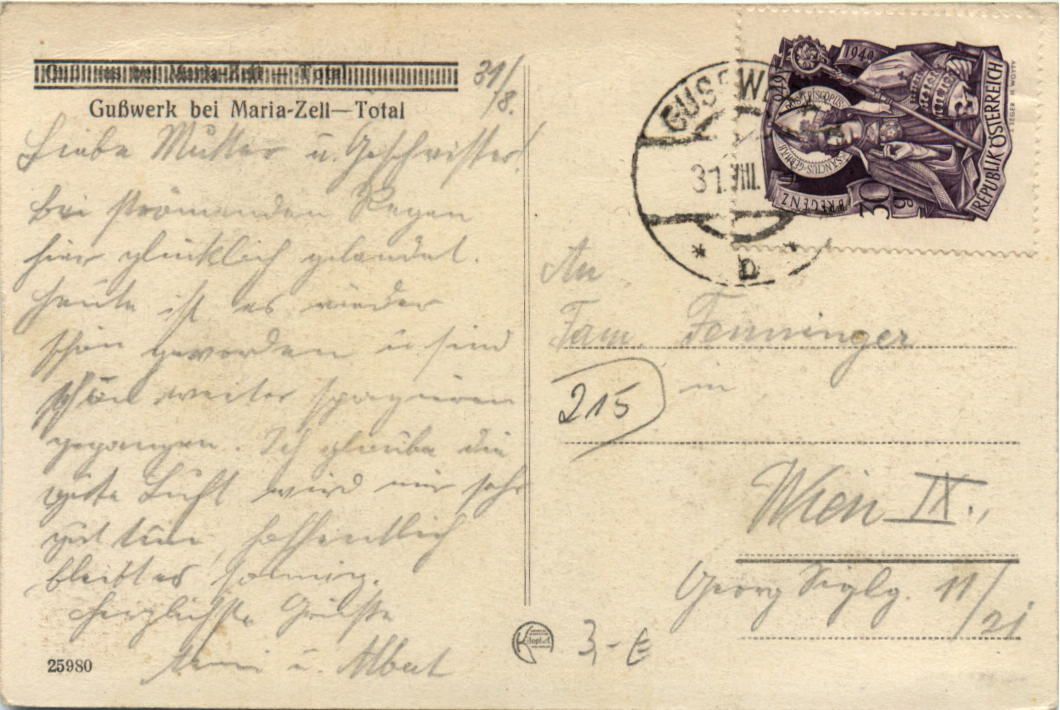 Gußwerk bei Maria-Zell — Total
Gußwerk bei Maria-Zell—Total
31/8.
Liebe Mutter u. Geschwister!
Bei strömenden Regen
hier glücklich gelandet.
Heute ist es wieder
schön geworden u. sind
schön weiter spazieren
gegangen. Ich glaube die
gute Luft wird mir sehr
gut tun, hoffentlich
bleibt es sonnig.
Herzlichste Grüße
u. Albert
25980
GUSSWE
31.VIII.
* b *
1949
BREGENZ
30
REPUBLIK ÖSTERREICH
An
Fam. Fenninger
in
215
Wien IX.,
Georg Siglg. 11/
21
3,- €